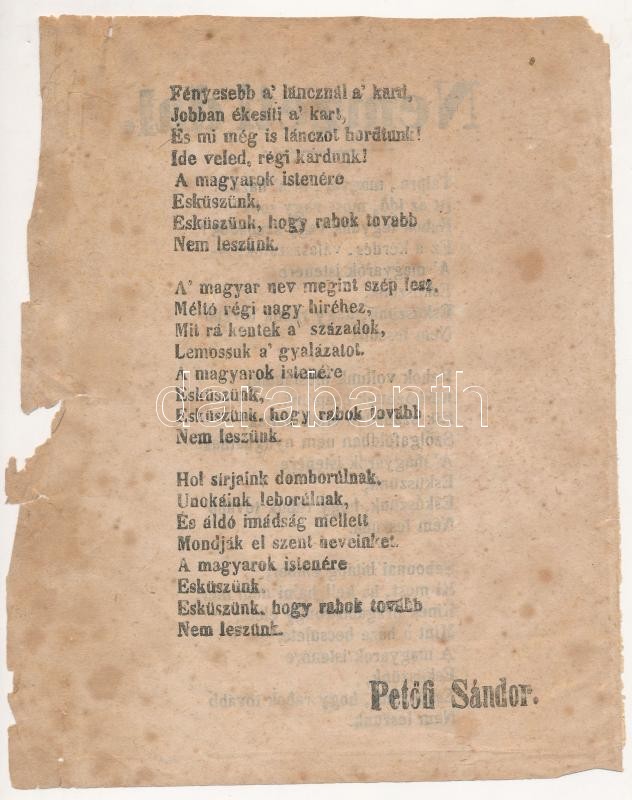 Fényesebb a' láncznál a' kard,
Jobban ékesiti a' kart,
És mi még is lánczot hordtunk!
Ide veled, régi kardunk!
A magyarok istenére
Esküszünk,
Esküszünk, hogy rabok tovább
Nem leszünk.
A' magyar nev megint szép lesz,
Méltó régi nagy hiréhez,
Mit rá kentek a' századok,
Lemossuk a' gyalázatot.
A magyarok istenére
Esküszünk,
Esküszünk, hogy rabok tovább
Nem leszünk.
Hol sirjaink domborúlnak,
Unokáink leborúlnak,
És áldó imádság mellett
Mondják el szent neveinket.
A magyarok istenére
Esküszünk
Esküszünk, hogy rabok tovább
Nem leszünk.
Petőfi Sándor.
darabanth